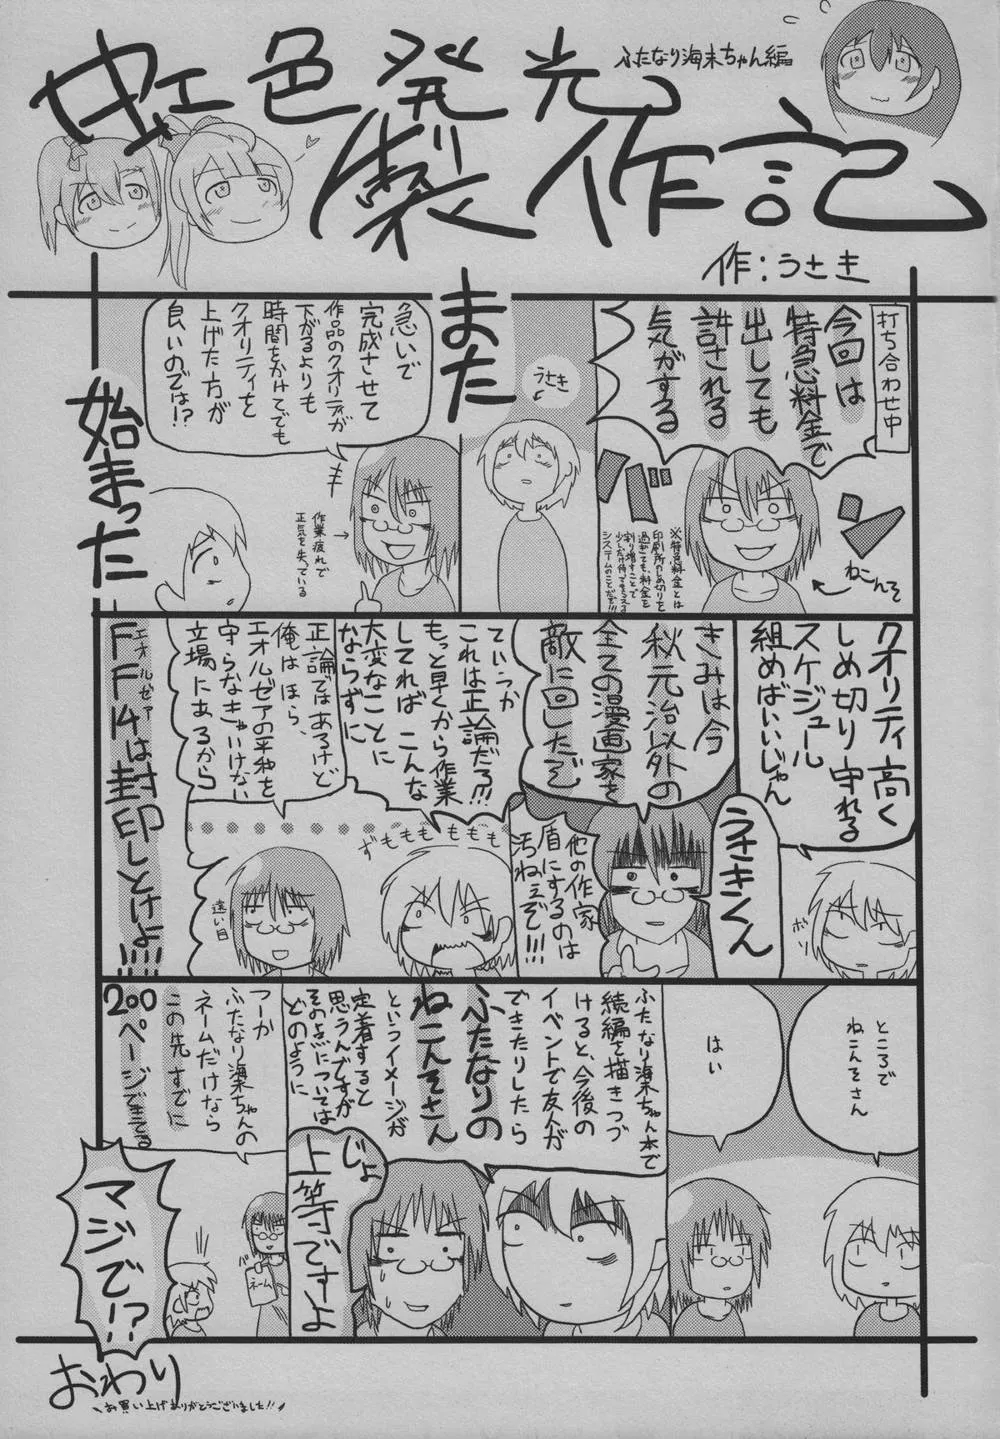 虹色発光
製作記
ふたなり海未ちゃん編
作：うさき
打ち合わせ中
今回は
特急料金で
出しても
許される
気がする
バ
ン
ねこんそ
※特急料金とは
印刷所が〆切りを
過ぎても、料金を
割り増すことで
少しだけ待ってもらえる
システムのことだぞ!!!
うさき
また
急いで
完成させて
作品のクオリティが
下がるよりも
時間をかけてでも
クオリティを
上げた方が
良いのでは!?
作業疲れで
正気を失っている
始まった
クオリティ高く
しめ切り守れる
スケジュール
組めばいいじゃん
ボソ
うさきくん
きみは今
秋元治以外の
全ての漫画家を
敵に回したぞ
他の作家
盾にするのは
汚ねぇぞ!!!
ていうか
これは正論だろ!!!
もっと早くから作業
してれば こんな
大変なことに
ならずに
ずももももももも
正論ではあるけど
俺はほら、
エオルゼアの平和を
守らなきゃいけない
立場にあるから
遠い目
エオルゼア
FF14は封印しとけよ!!!!
ところで
ねこんそさん
はい
ふたなり海未ちゃん本で
続編を描きつづ
けると、今後の
イベントで友人が
できたりしたら
ふたなりの
ねこんそさん
というイメージが
定着すると
思うんですが
その点については
どのように
じょ
上等ですよ
つーか
ふたなり海未ちゃんの
ネームだけなら
この先すでに
200
ページできてる
バ
ネーム
マジで!?
おわり
お買い上げありがとうございました!!